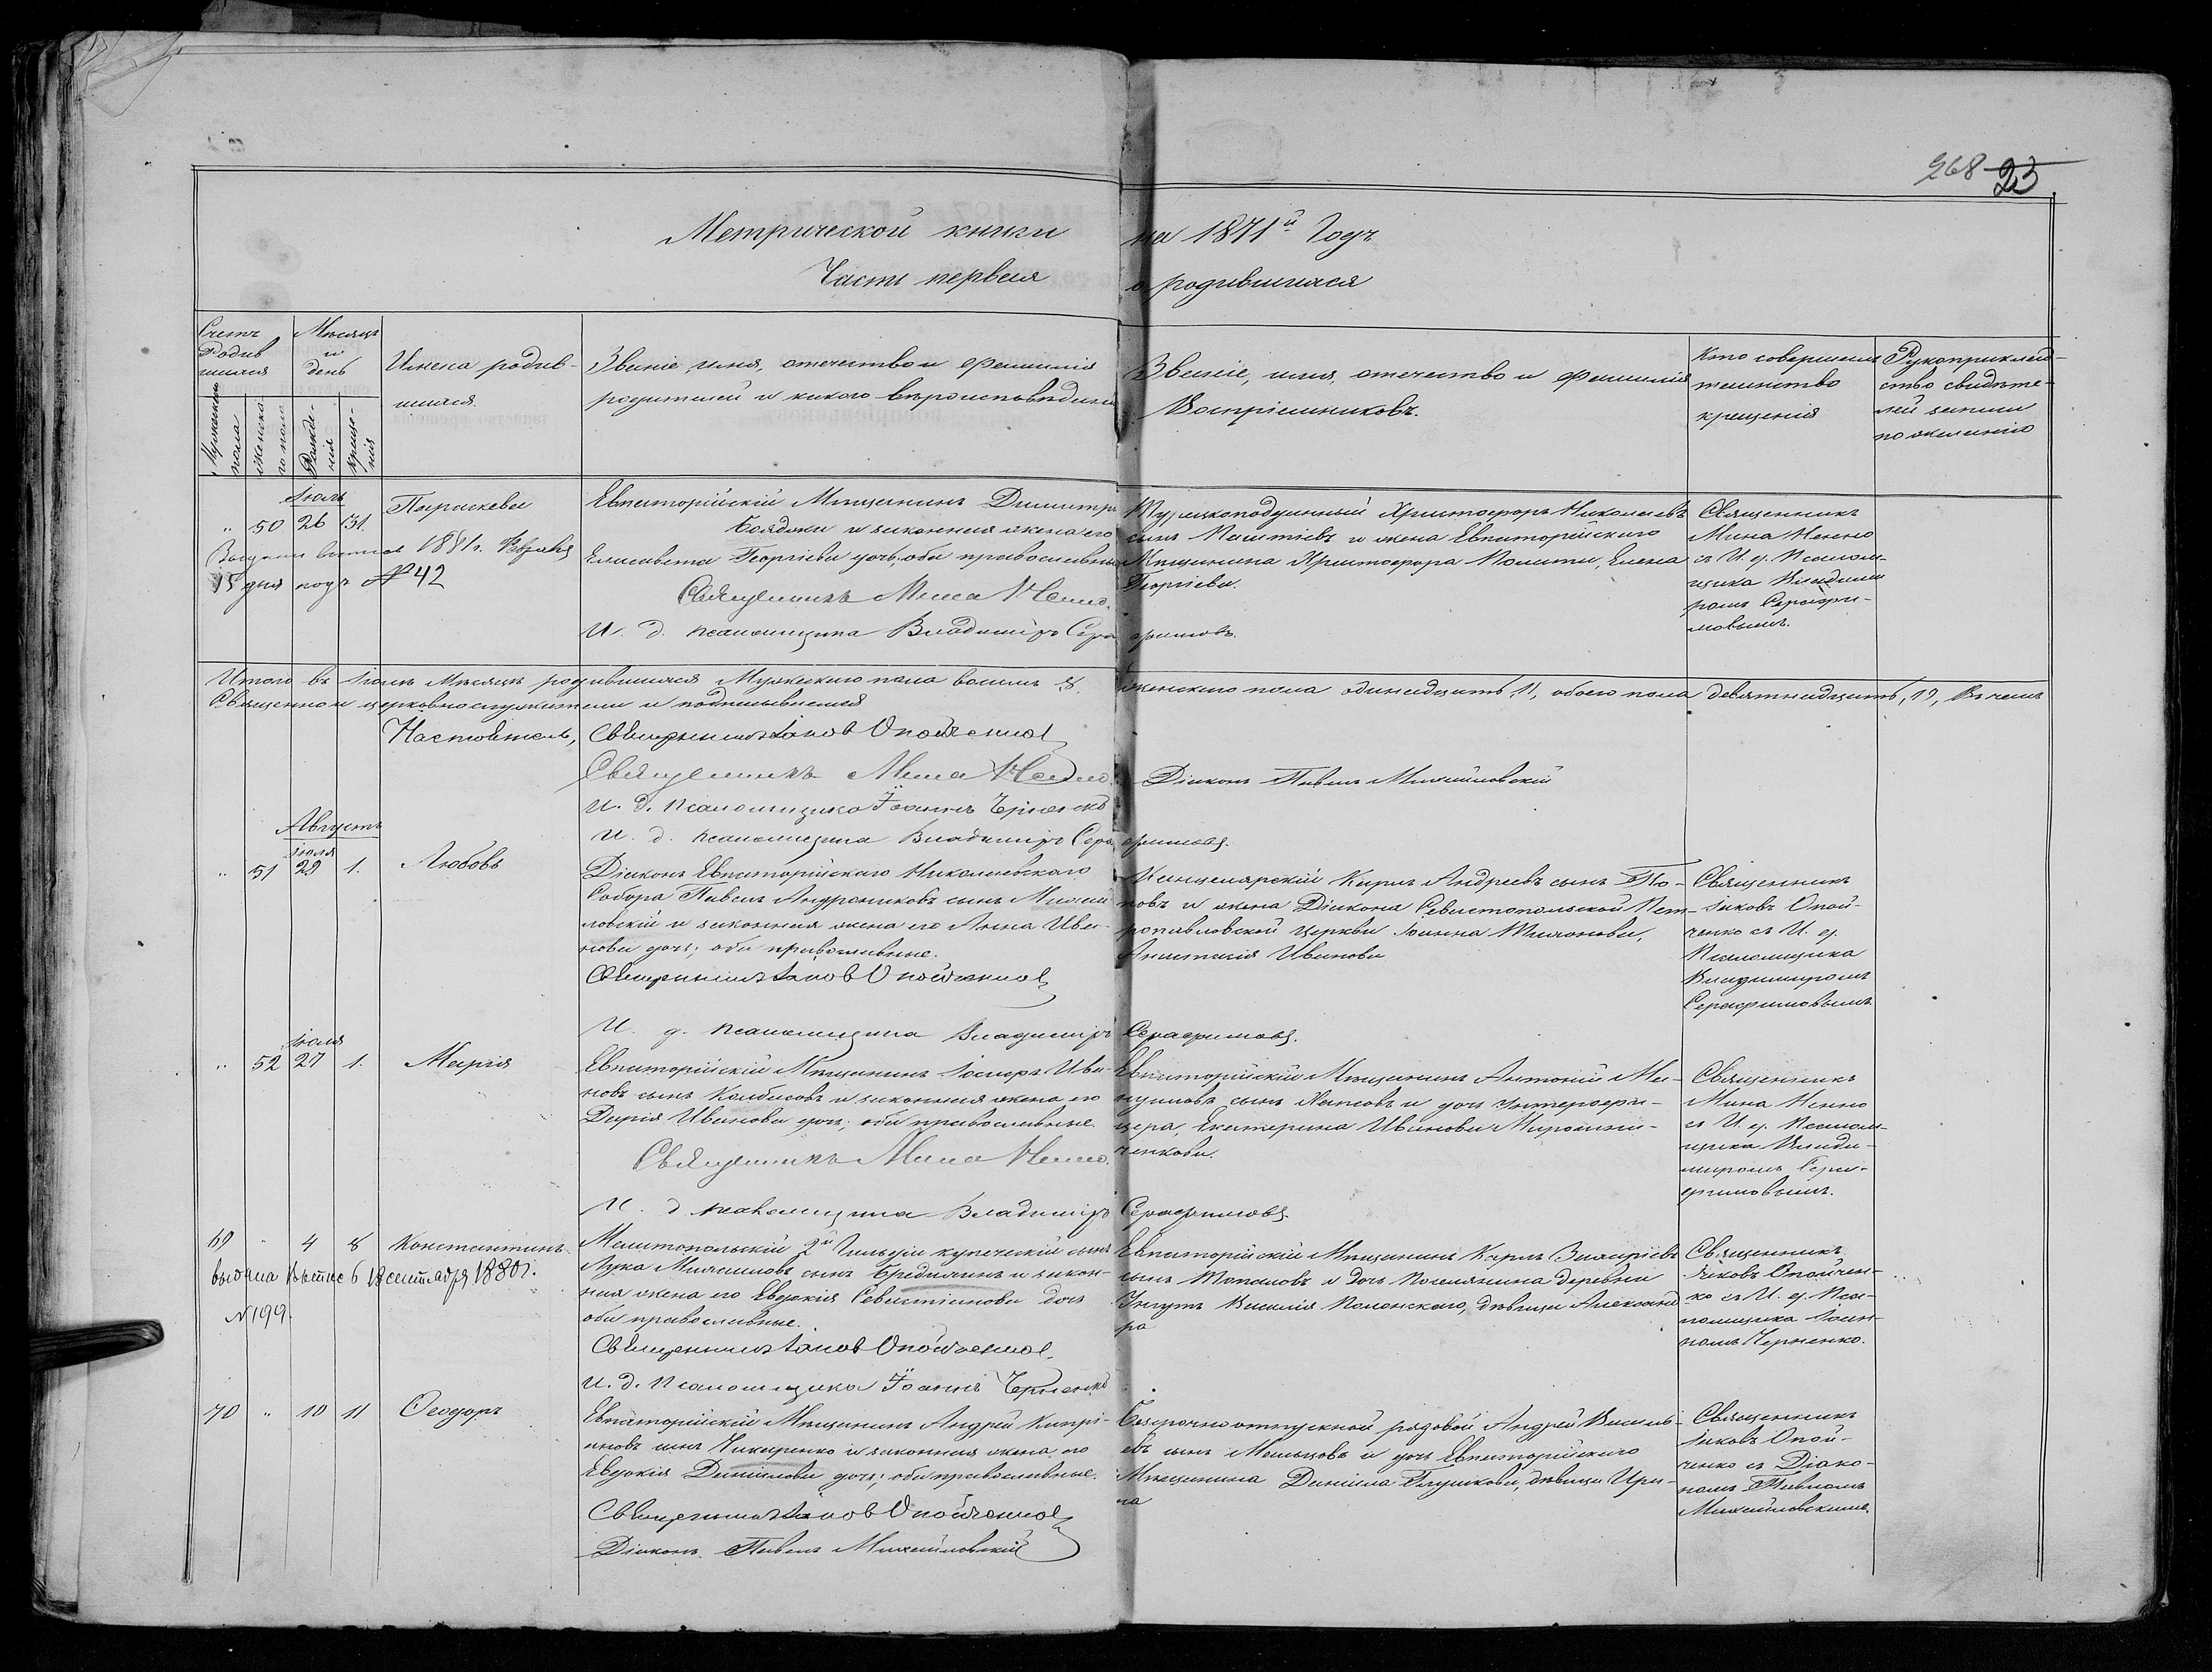 268 23
Метрической книги на 1871й Годъ
Часть первая о родившихся
Счетъ Родившихся
Мѣсяцъ и день
Имена родив-
шихся.
Званіе, имя, отечество и фамилія
родителей и какого вѣроисповѣданія
Званіе, имя, отечество и фамилія
Воспріемниковъ.
Кто совершалъ
таинство
крещенія
Рукоприклад-
ство свидѣте-
лей записи
по желанію
Мужеска
пола
женска-
го пола
Рожде-
нія
креще-
нія
Іюль
„ 50 26 31.
Параскева
Выдана выпись 1881г. Февраля
15 дня подъ № 42
Евпаторійскій Мѣщанинъ Димитрій
и законная жена его
Елисавета Георгіева дочь, оба православные
Священникъ Мина Ненно.
И. д. псаломщика Владиміръ Серафимовъ.
Турецкоподданный Христофоръ Николаевъ
сынъ и жена Евпаторійскаго
Мѣщанина Христофора Полити, Елена
Георгіева.
Священникъ
Мина Ненно
съ И. д. Псалом-
щика Владими
ромъ Серафи-
мовымъ.
Итого въ Іюлѣ Мѣсяцѣ родившихся Мужескаго пола восемь 8. женскаго пола одинадцать, 11, обоего пола девятнадцать, 19, Въ чемъ
Священно и церковнослужители и подписываемся
Настоятель, Священникъ Іаковъ Опойченко
Священникъ Мина Ненно. Діаконъ Павелъ Михайловскій
И. д. Псаломщика Іоаннъ Черненко
И. д. псаломщика Владиміръ Серафимовъ.
Августъ
Іюля
„ 51 29 1. Любовь
Діаконъ Евпаторійскаго Николаевскаго
Собора Павелъ Андрониковъ сынъ Михай
ловскій и законная жена его Анна Ива-
нова дочь; оба православные.
Священникъ Іаковъ Опойченко
И. д. псаломщика Владиміръ Серафимовъ.
Канцелярскій Кирилъ Андреевъ сынъ По-
повъ и жена Діакона Севастопольской Пет-
ропавловской церкви Іоанна
Анастасія Иванова
Священникъ
Іаковъ Опой-
ченко съ И. д.
Псаломщика
Владиміромъ
Серафимовымъ
Іюля
„ 52 27 1. Марія
Евпаторійскій Мѣщанинъ Іосифъ Ива-
новъ сынъ и законная жена его
Дарія Иванова дочь; оба православные.
Священникъ Мина Ненно.
И. д. псаломщика Владиміръ Серафимовъ
Евпаторійскій Мѣщанинъ Антоній Ма-
нуиловъ сынъ и дочь Унтерофи-
цера, Екатерина Иванова Мирошни-
ченкова.
Священникъ
Мина Ненно
съ И. д. Псалом-
щика Влади-
миромъ Сера-
фимовымъ.
69 „ 4 8 Константинъ.
выдана выпись 18 сентября 1880г.
№ 199.
Мелитопольскій 2й Гильдіи купеческій сынъ
Лука сынъ и закон-
ная жена его Евдокія Севастіанова дочь
оба православные.
Священникъ Іаковъ Опойченко
И. д. Псаломщика Іоаннъ Черненко
Евпаторійскій Мѣщанинъ Карпъ
сынъ и дочь Поселянина деревни
Унгутъ Василія Полонскаго, дѣвица Александ
ра
Священникъ
Іаковъ Опойчен-
ко съ И. д. Пса-
ломщика Іоан-
номъ Черненко.
70 „ 10 11 Ѳеодоръ
Евпаторійскій Мѣщанинъ Андрей Кипрі-
ановъ сынъ Чикаренко и законная жена его
Евдокія Даніилова дочь; оба православные.
Священникъ Іаковъ Опойченко
Діаконъ Павелъ Михайловскій
Безсрочноотпускной рядовой Андрей Василь-
евъ сынъ Мальцовъ и дочь Евпаторійскаго
Мѣщанина Даніила Глушкова, дѣвица Ири-
на
Священникъ
Іаковъ Опой-
ченко съ Діако-
номъ Павломъ
Михайловскимъ.